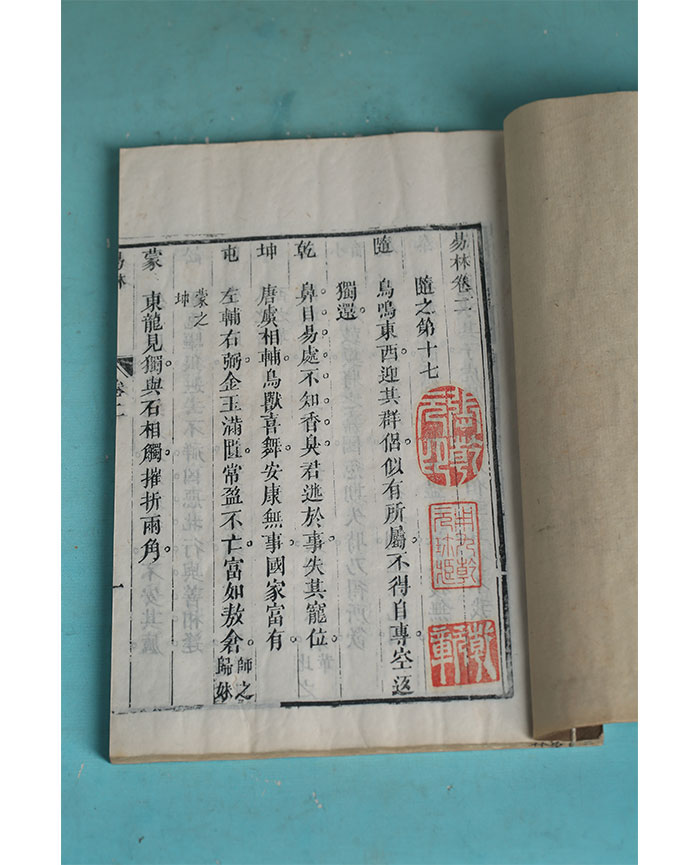 易林卷二
隨之第十七
隨 鳥鳴東西迎其群侶似有所屬不得自專空返
獨還
乾 鼻目易處不知香臭君迷於事失其寵位
坤 唐虞相輔鳥獸喜舞安康無事國家富有
屯 左輔右弼金玉滿匱常盈不亡富如敖倉 師之歸妹
蒙之坤
蒙 東龍見獨與石相觸摧折兩角
易林 卷二 一